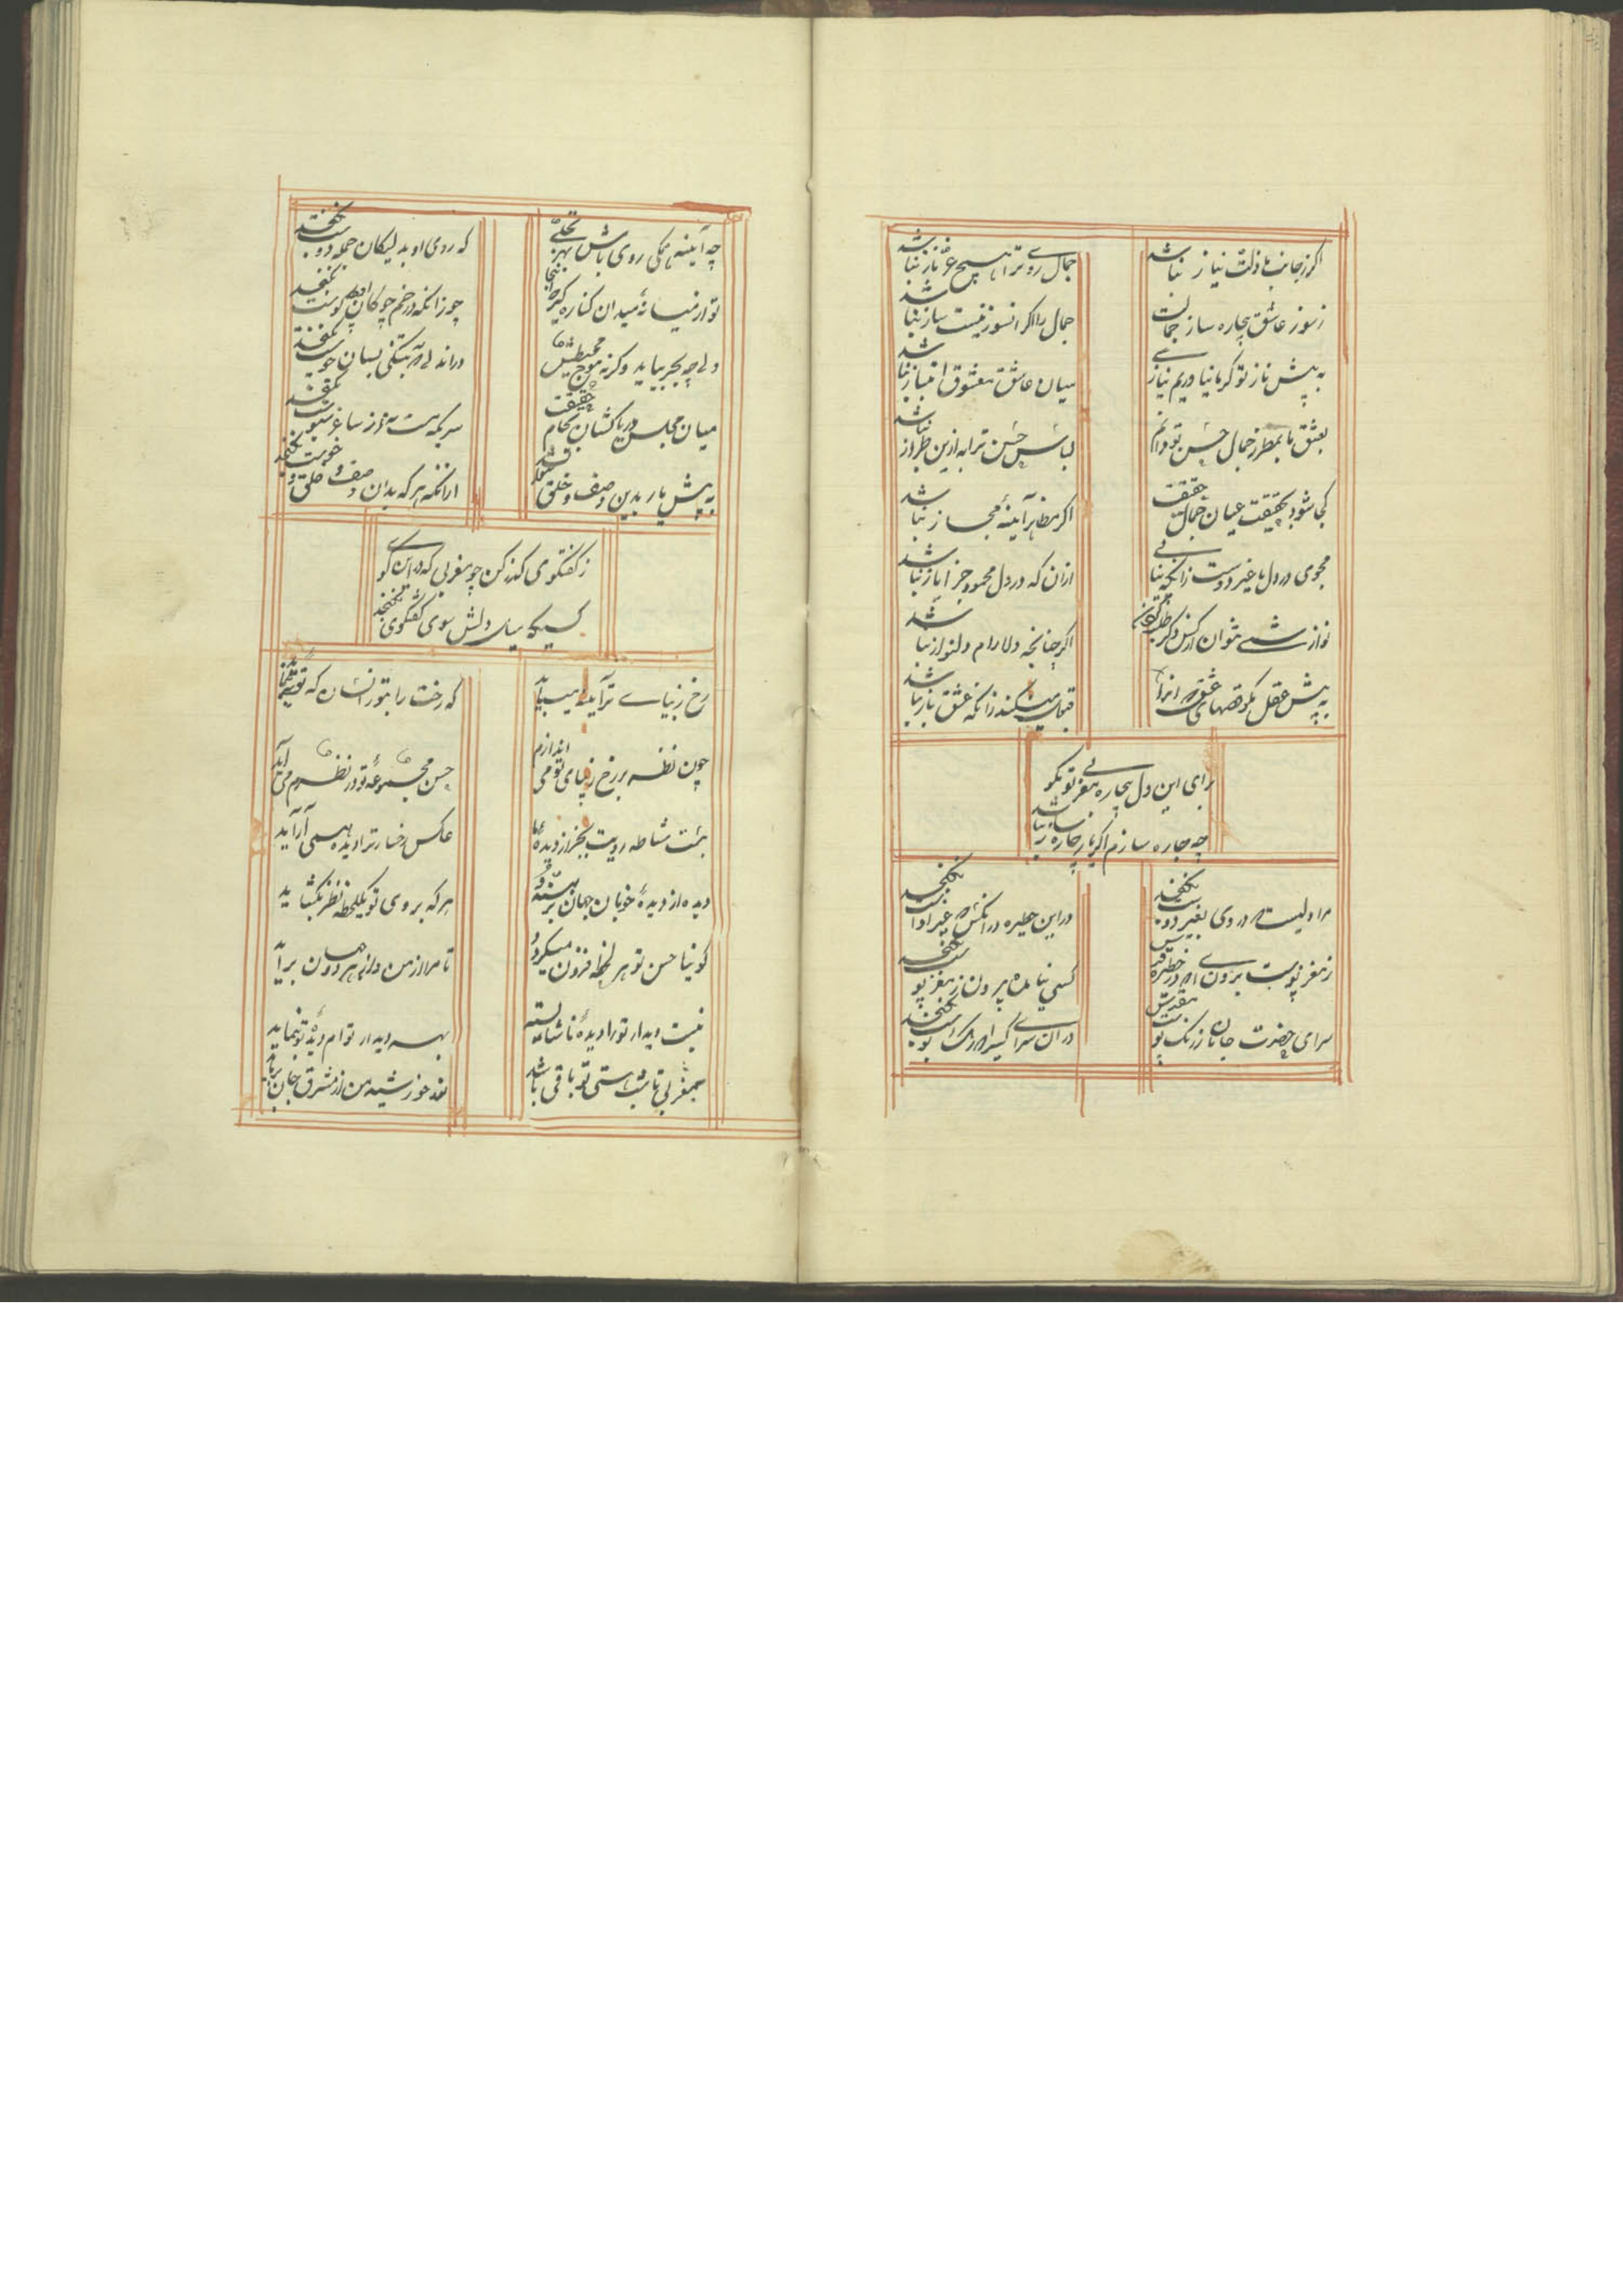 اگر زجانب ما ذلت نیاز نباشد
جمال روی ترا هیچ عز و ناز نباشد
زسوز عاشق بیچاره ساز جمالت
جمال را اگر آن سوز نیست ساز نباشد
به پیش ناز تو گر ما نیاوریم نیازی
میان عاشق و معشوق امتیاز نباشد
بعشق ما بمطرز جمال حسن تو دایم
لباس حسن ترا به ازین طراز نباشد
کجا شود بحقیقت عیان جمال حقیقت
اگر مظاهر آیینهٔ مجاز نباشد
مجوی در دل ما غیر دوست زانکه نیابی
ازان که در دل محمود جز ایاز نباشد
نوازشی نتوان از کس دگر طلبیدن
اگر چنانچه دلارام دلنواز نباشد
به پیش عقل مگو قصهای عشق که آنرا
قبول می نکند زانکه عشق باز نباشد
برای این دل بیچاره مغربی تو بگو
چه چاره سازم اگر یار چاره ساز نباشد
مرا دلیست که در وی بغیر دوست نگنجد
درین حظیره در آنکش که غیر اوست نگنجد
زمغز و پوست برون ای که در حظیرهٔ قدسش
کسی نیامده بیرون زمغز و پوست نگنجد
سرای حضرت جانان زرنگ و بوست مقدس
در آن سرای کسی را که رنگ و بوست نگنجد
چه آینه همگی روی باش بهر تجلی
که روی او بدلیکان جمله دوست نگنجد
تو از میانهٔ میدان کناره گیر
چو زانکه در خم چوگان گوست نگنجد
ولی چه بحر بباید وگرنه موج محیطش
در اندلی که بتنگی بسان جوست نگنجد
میان مجلس دریاکشان بکام حقیقت
سریکه مست نه از ساغر و سبوست نگنجد
به پیش یار بدین وصف و خلق
ازانکه هر که بدان وصف و خلق و خوست نگنجد
زگفتگوی گذر کن چو مغربی که در این کوی
کسیکه میل دلش سوی گفتگوی نگنجد
رخ زیبای ترا آینه میباید
که رخت را بتو زانسان که تویی بنماید
چون نظر بر رخ زیبای تو می اندازم
حسن مجموعه تو در نظرم می آید
نیست مشاطه رویت بجز از دیدهٔ ما
عکس رخسار ترا دیده همی آراید
دیده از دیدهٔ خوبان جهان بربندد
هر که بر روی تو یکلحظه نظر بگشاید
گوئیا حسن تو هر لحظه فزون میگردد
تا مرا از من و از هر دو جهان برباید
نیست دیدار تو را دیدهٔ ما شایسته
بهر دیدار توام دیدهٔ تو میباید
مغربی تا بتو هستی تو باقی باشد
خورشید من از مشرق جان برناید